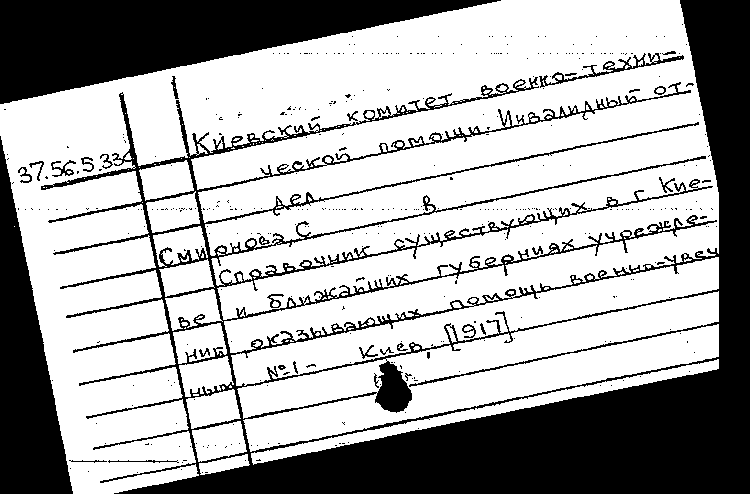 Киевский комитет военно-техни-
37.56.5.334
ческой помощи. Инвалидный от-
дел.
Смирнова, С В
Справочник существующих в г. Кие-
ве и ближайших губерниях учрежде-
ний, оказывающих помощь военно-увеч
ным. №1- Киев, [1917].